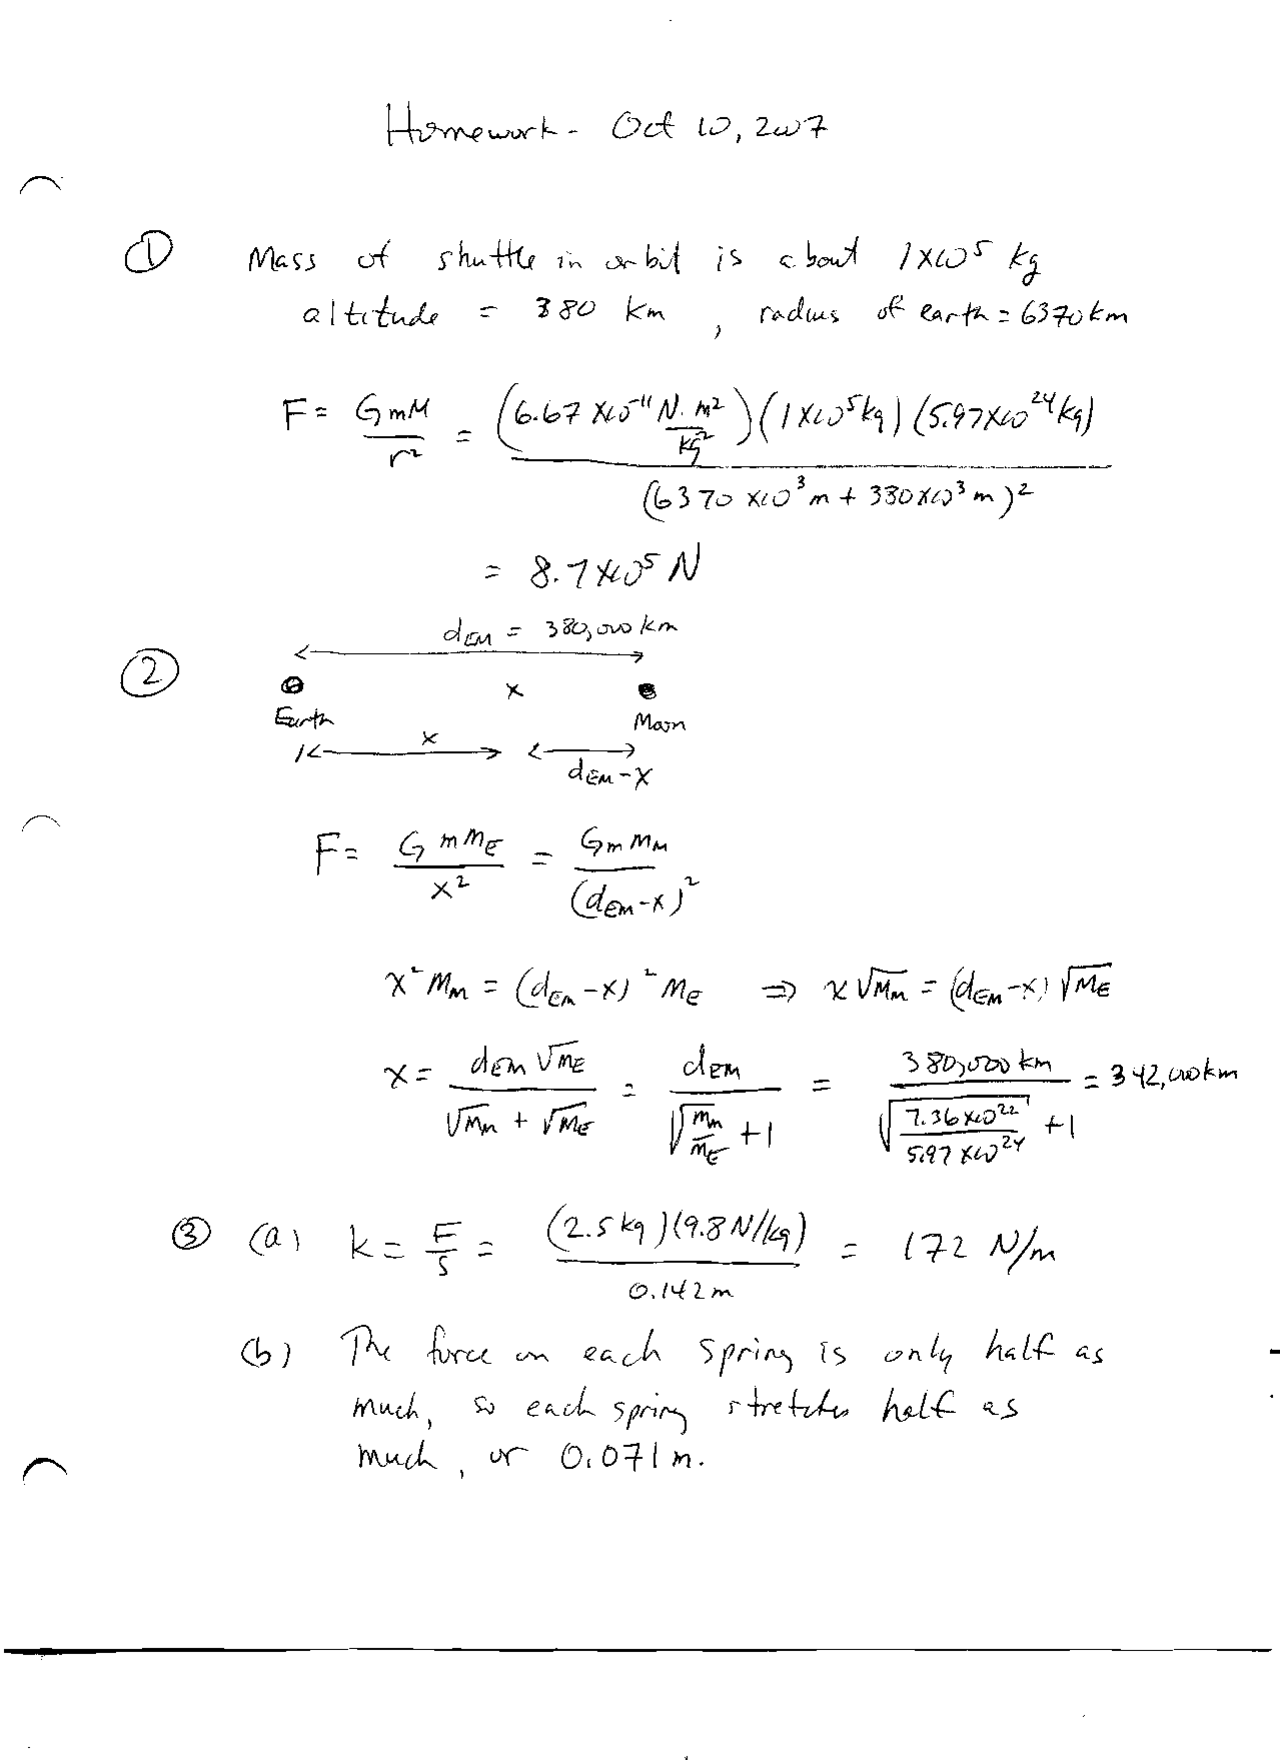 Homework - Oct 10, 2007
① Mass of shuttle in orbit is about 1×10⁵ kg
altitude = 380 km, radius of earth = 6370 km
F = GmM/r² = (6.67×10⁻¹¹ N·m²/kg²)(1×10⁵ kg)(5.97×10²⁴ kg)/(6370×10³ m + 380×10³ m)²
= 8.7×10⁵ N
d_EM = 380,000 km
②
Earth x Moon
x
d_EM - x
F = G m M_E/x² = G m M_m/(d_EM - x)²
x² M_m = (d_EM - x)² M_E ⇒ x √M_m = (d_EM - x) √M_E
x = d_EM √M_E/(√M_m + √M_E) = d_EM/(√(M_m/M_E) + 1) = 380,000 km/(√(7.36×10²²/5.97×10²⁴) + 1) = 342,000 km
③ (a) k = F/s = (2.5 kg)(9.8 N/kg)/0.142 m = 172 N/m
(b) The force on each spring is only half as
much, so each spring stretches half as
much, or 0.071 m.